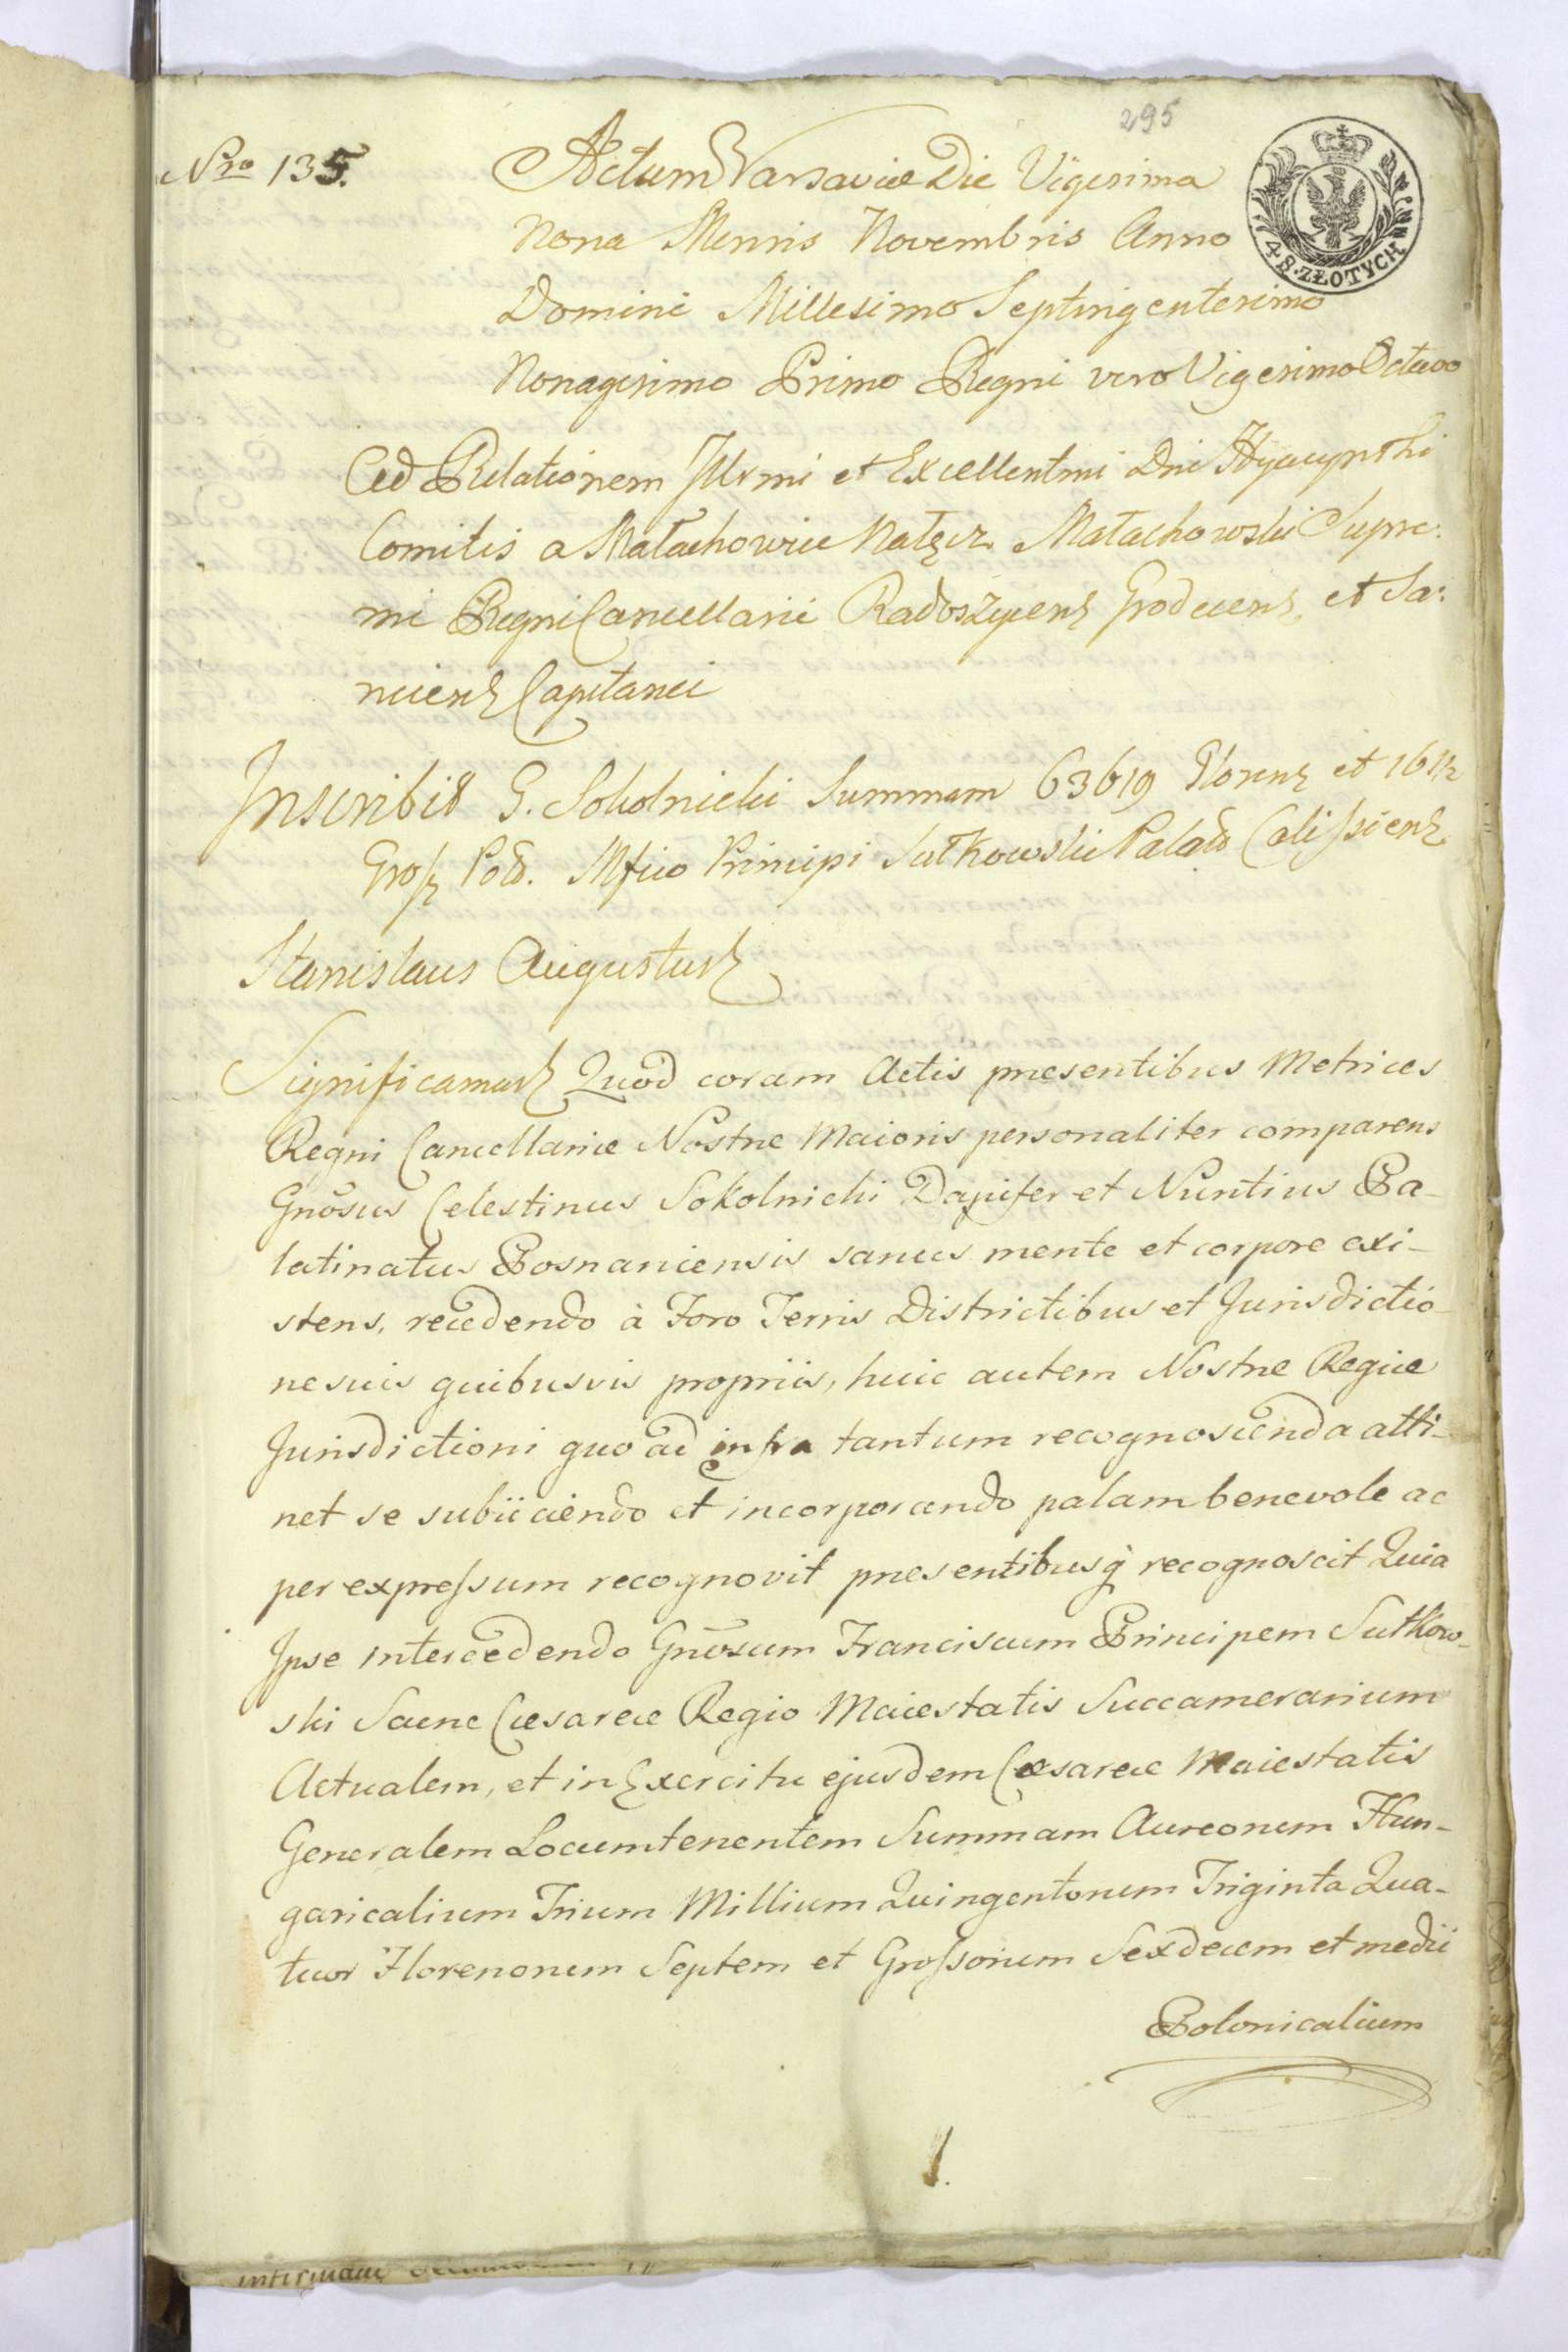 295
Nro 135.
Actum Varsaviæ Die Vigesima
Nona Mensis Novembris Anno
Domini Millesimo Septingentesimo
Nonagesimo Primo Regni vero Vigesimo Octavo
4 g. ZŁOTYCH
Ad Relationem Illrmi et Excellentmi Dni Hyacynthi
Comitis a Małachowice Nałęcz Małachowski Supre:
mi Regni Cancellarii Radoszycens Grodecens et Sa:
nicens Capitanei
Inscribit G. Sokolnicki Summam 63619 Florens et 16 1/2
Gross Pol. Mfico Principi Sułkowski Palat Calissiens
Stanislaus Augustus
Significamus Quod coram Actis præsentibus Metrices
Regni Cancellariæ Nostræ Maioris personaliter comparens
Gnosus Celestinus Sokolnicki Dapifer et Nuntius Pa-
latinatus Posnaniensis sanus mente et corpore exi-
stens, recedendo à Foro Terris Districtibus et Jurisdictio
nesuis quibusvis propriis, huic autem Nostræ Regiæ
Jurisdictioni quo ad infra tantum recognoscenda atti-
net se subiiciendo et incorporando palam benevole ac
per expressum recognovit præsentibusq recognoscit Quia
Ipse intercedendo Gnosum Franciscum Principem Sułkow-
ski Sacræ Cæsareæ Regio Maiestatis Succamerarium
Actualem, et in Exercitu ejusdem Cæsareæ Maiestatis
Generalem Locumtenentem Summam Aureorum Hun-
garicalium Trium Millium Quingentorum Triginta Qua-
tuor Florenorum Septem et Grossorum Sexdecem et medii
Polonicalium
1.